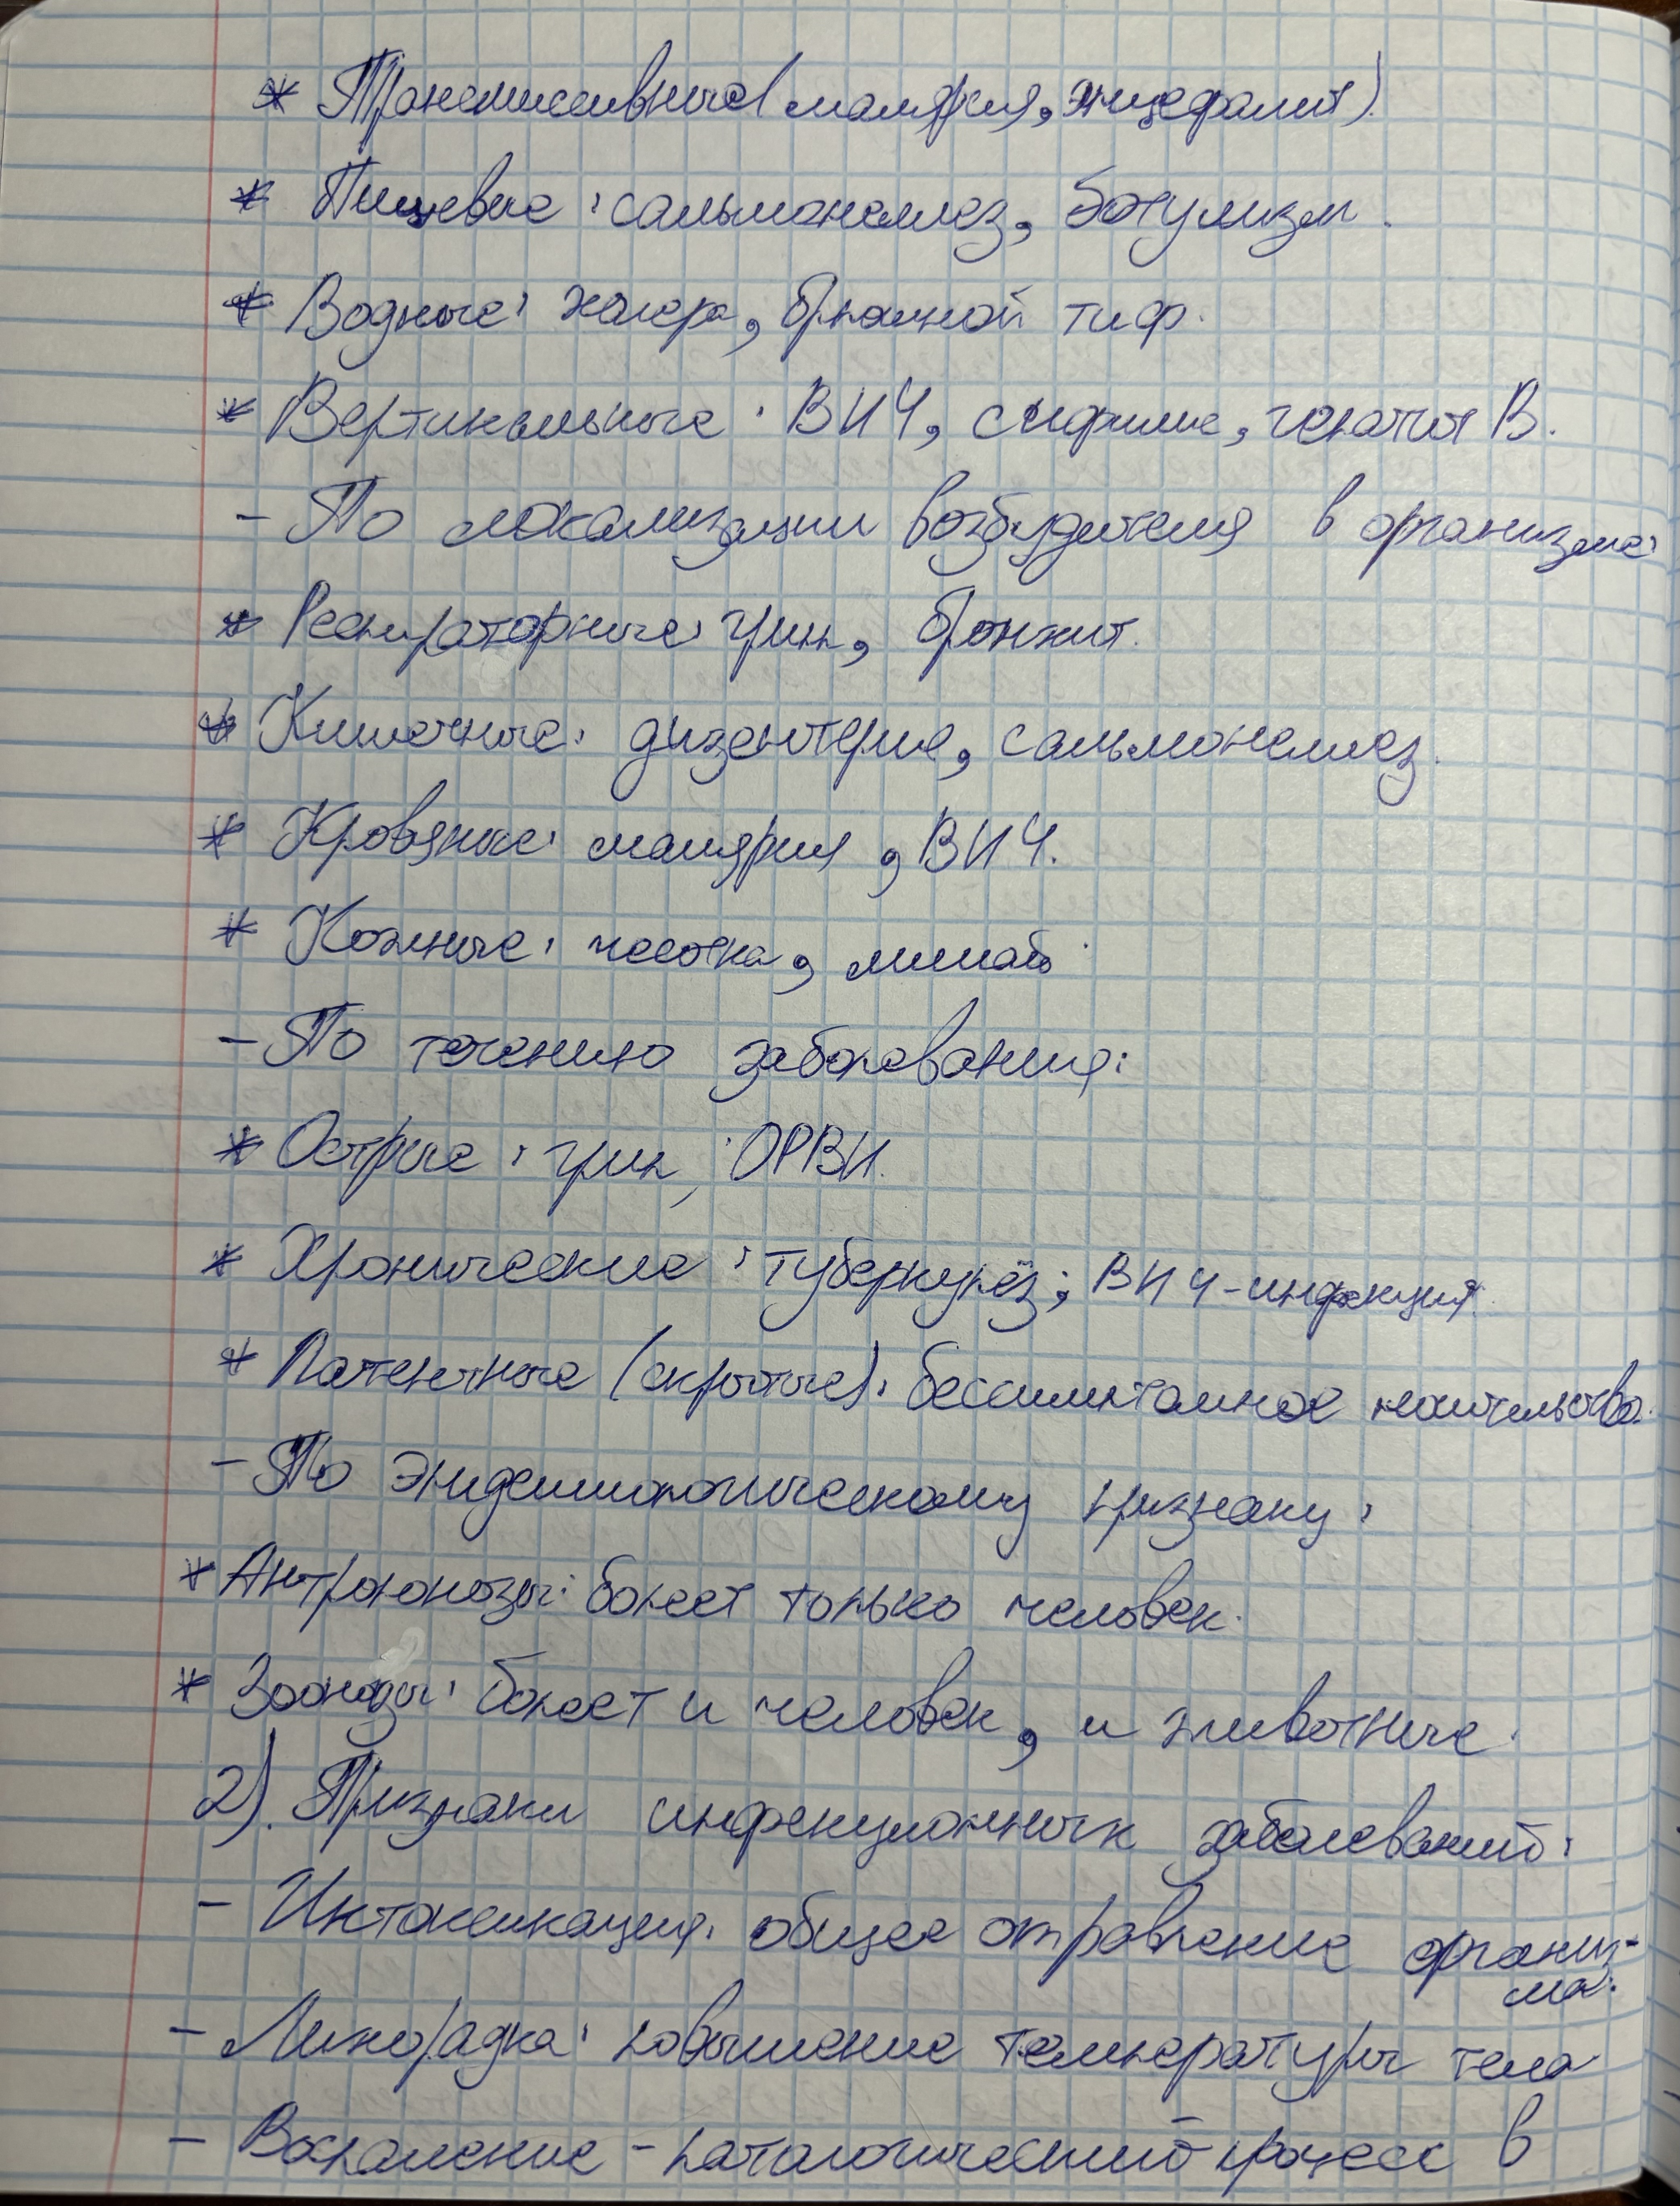 * Трансмиссивные (малярия, энцефалит).
* Пищевые: сальмонеллез, ботулизм.
* Водные: холера, брюшной тиф.
* Вертикальные: ВИЧ, сифилис, гепатит В.
- По локализации возбудителя в организме:
* Респираторные: грипп, бронхит.
* Кишечные: дизентерия, сальмонеллез.
* Кровяные: малярия, ВИЧ.
* Кожные: чесотка, лишай.
- По течению заболевания:
* Острые: грипп, ОРВИ.
* Хронические: туберкулёз; ВИЧ-инфекция.
* Латентные (скрытые): бессимптомное носительство.
- По эпидемиологическому признаку:
* Антропонозы: болеет только человек.
* Зоонозы: болеет и человек, и животные.
2). Признаки инфекционных заболеваний:
- Интоксикация: общее отравление организ-
ма.
- Лихорадка: повышение температуры тела
- Воспаление - патологический процесс в